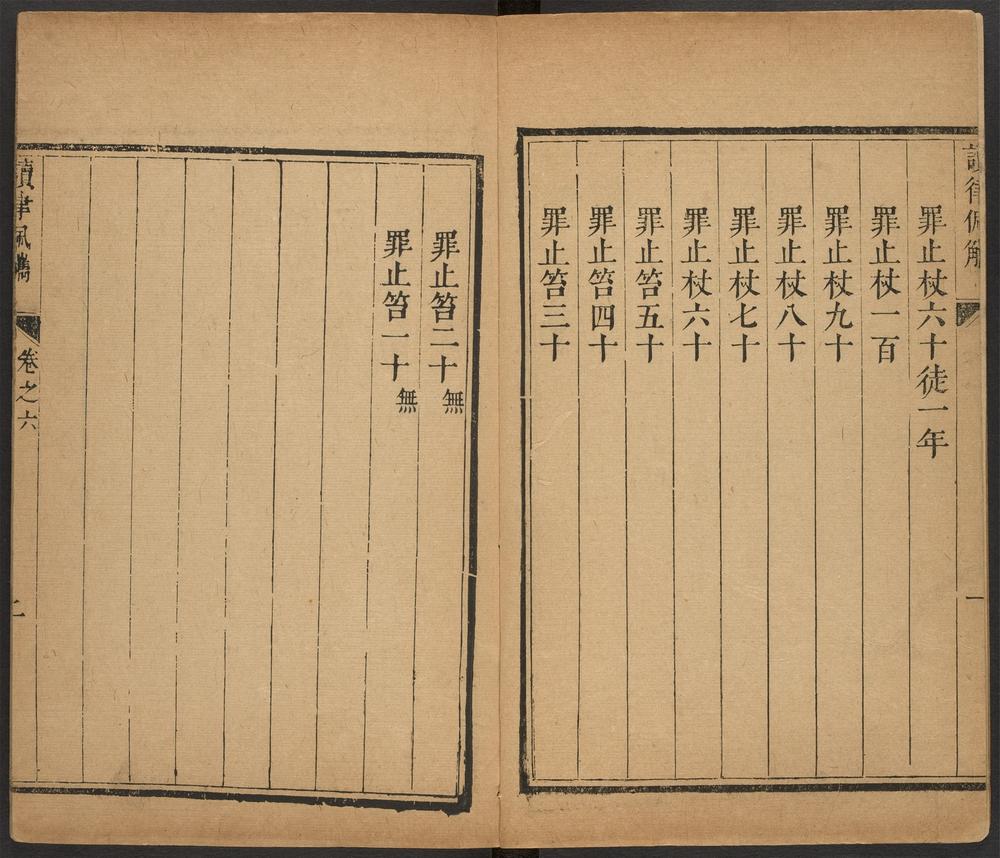 讀律佩觿
一
罪止杖六十徒一年
罪止杖一百
罪止杖九十
罪止杖八十
罪止杖七十
罪止杖六十
罪止笞五十
罪止笞四十
罪止笞三十
罪止笞二十 無
罪止笞一十 無
讀律佩觿
卷之六
二